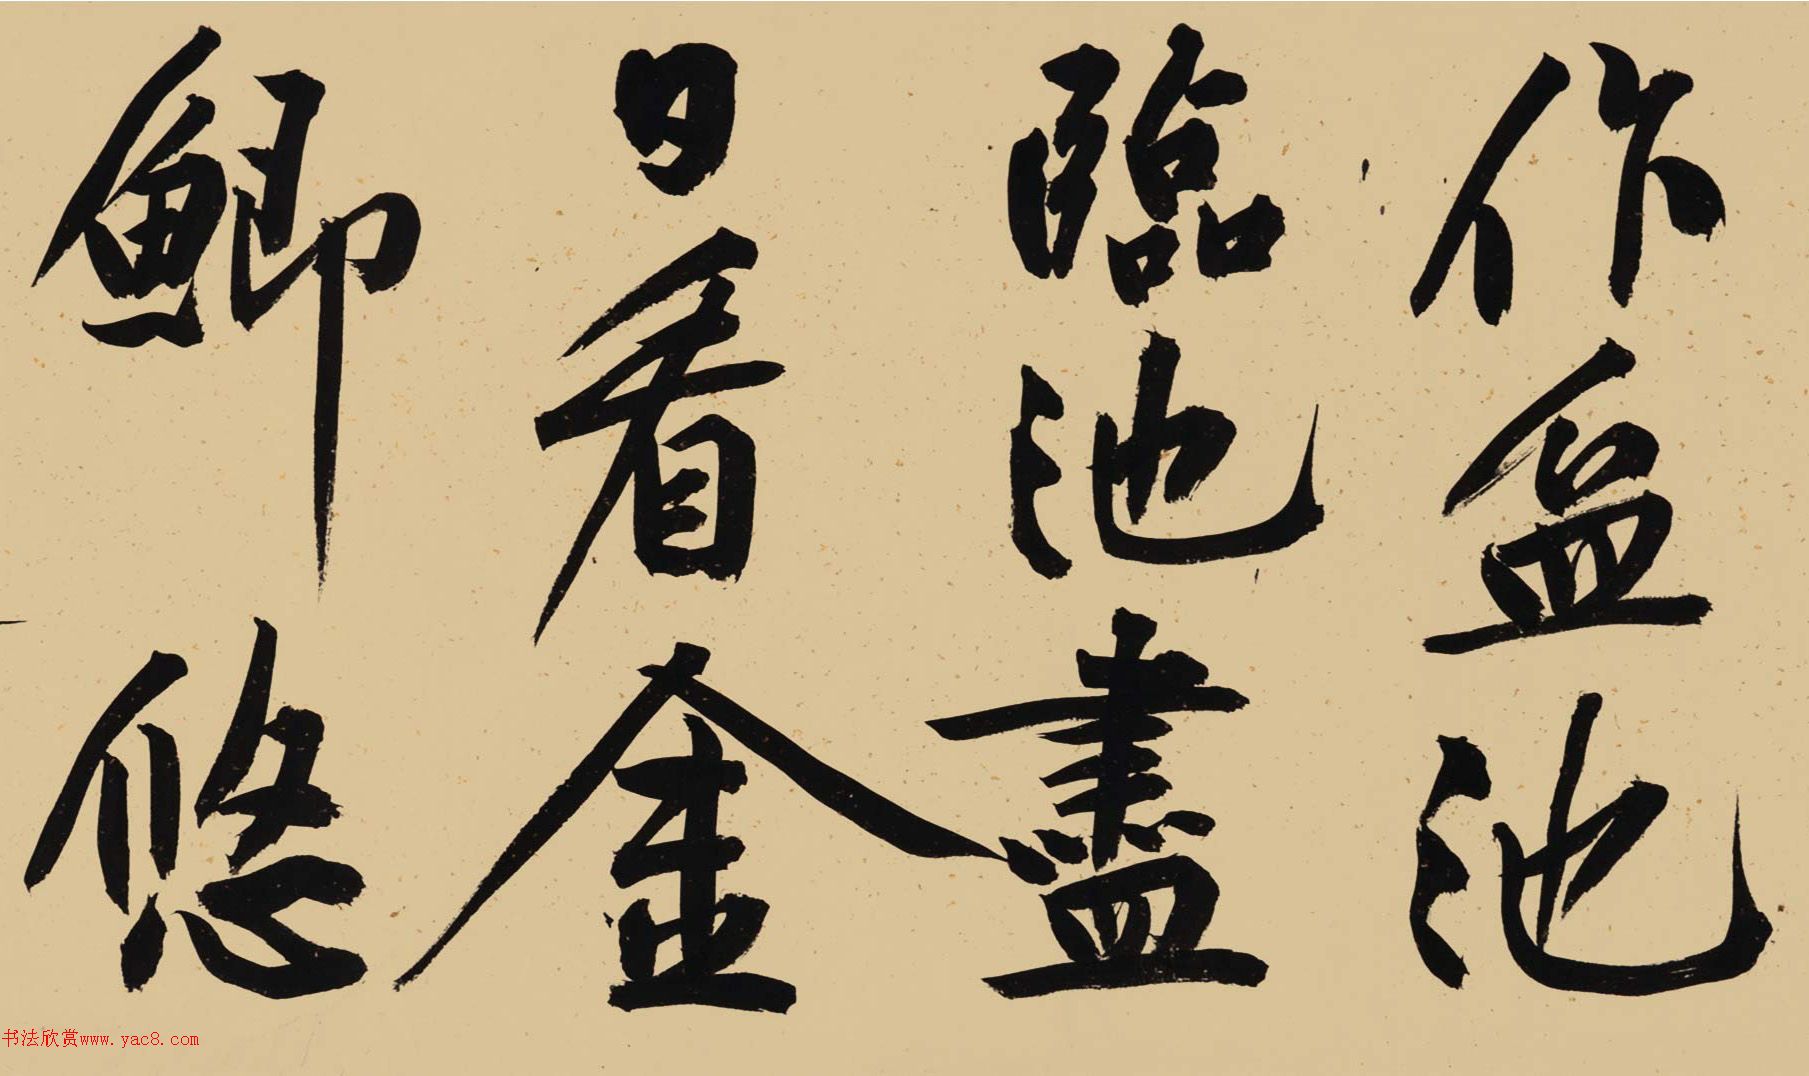 作盆池
臨池盡
日看金
鯽悠
书法欣赏www.yac8.com